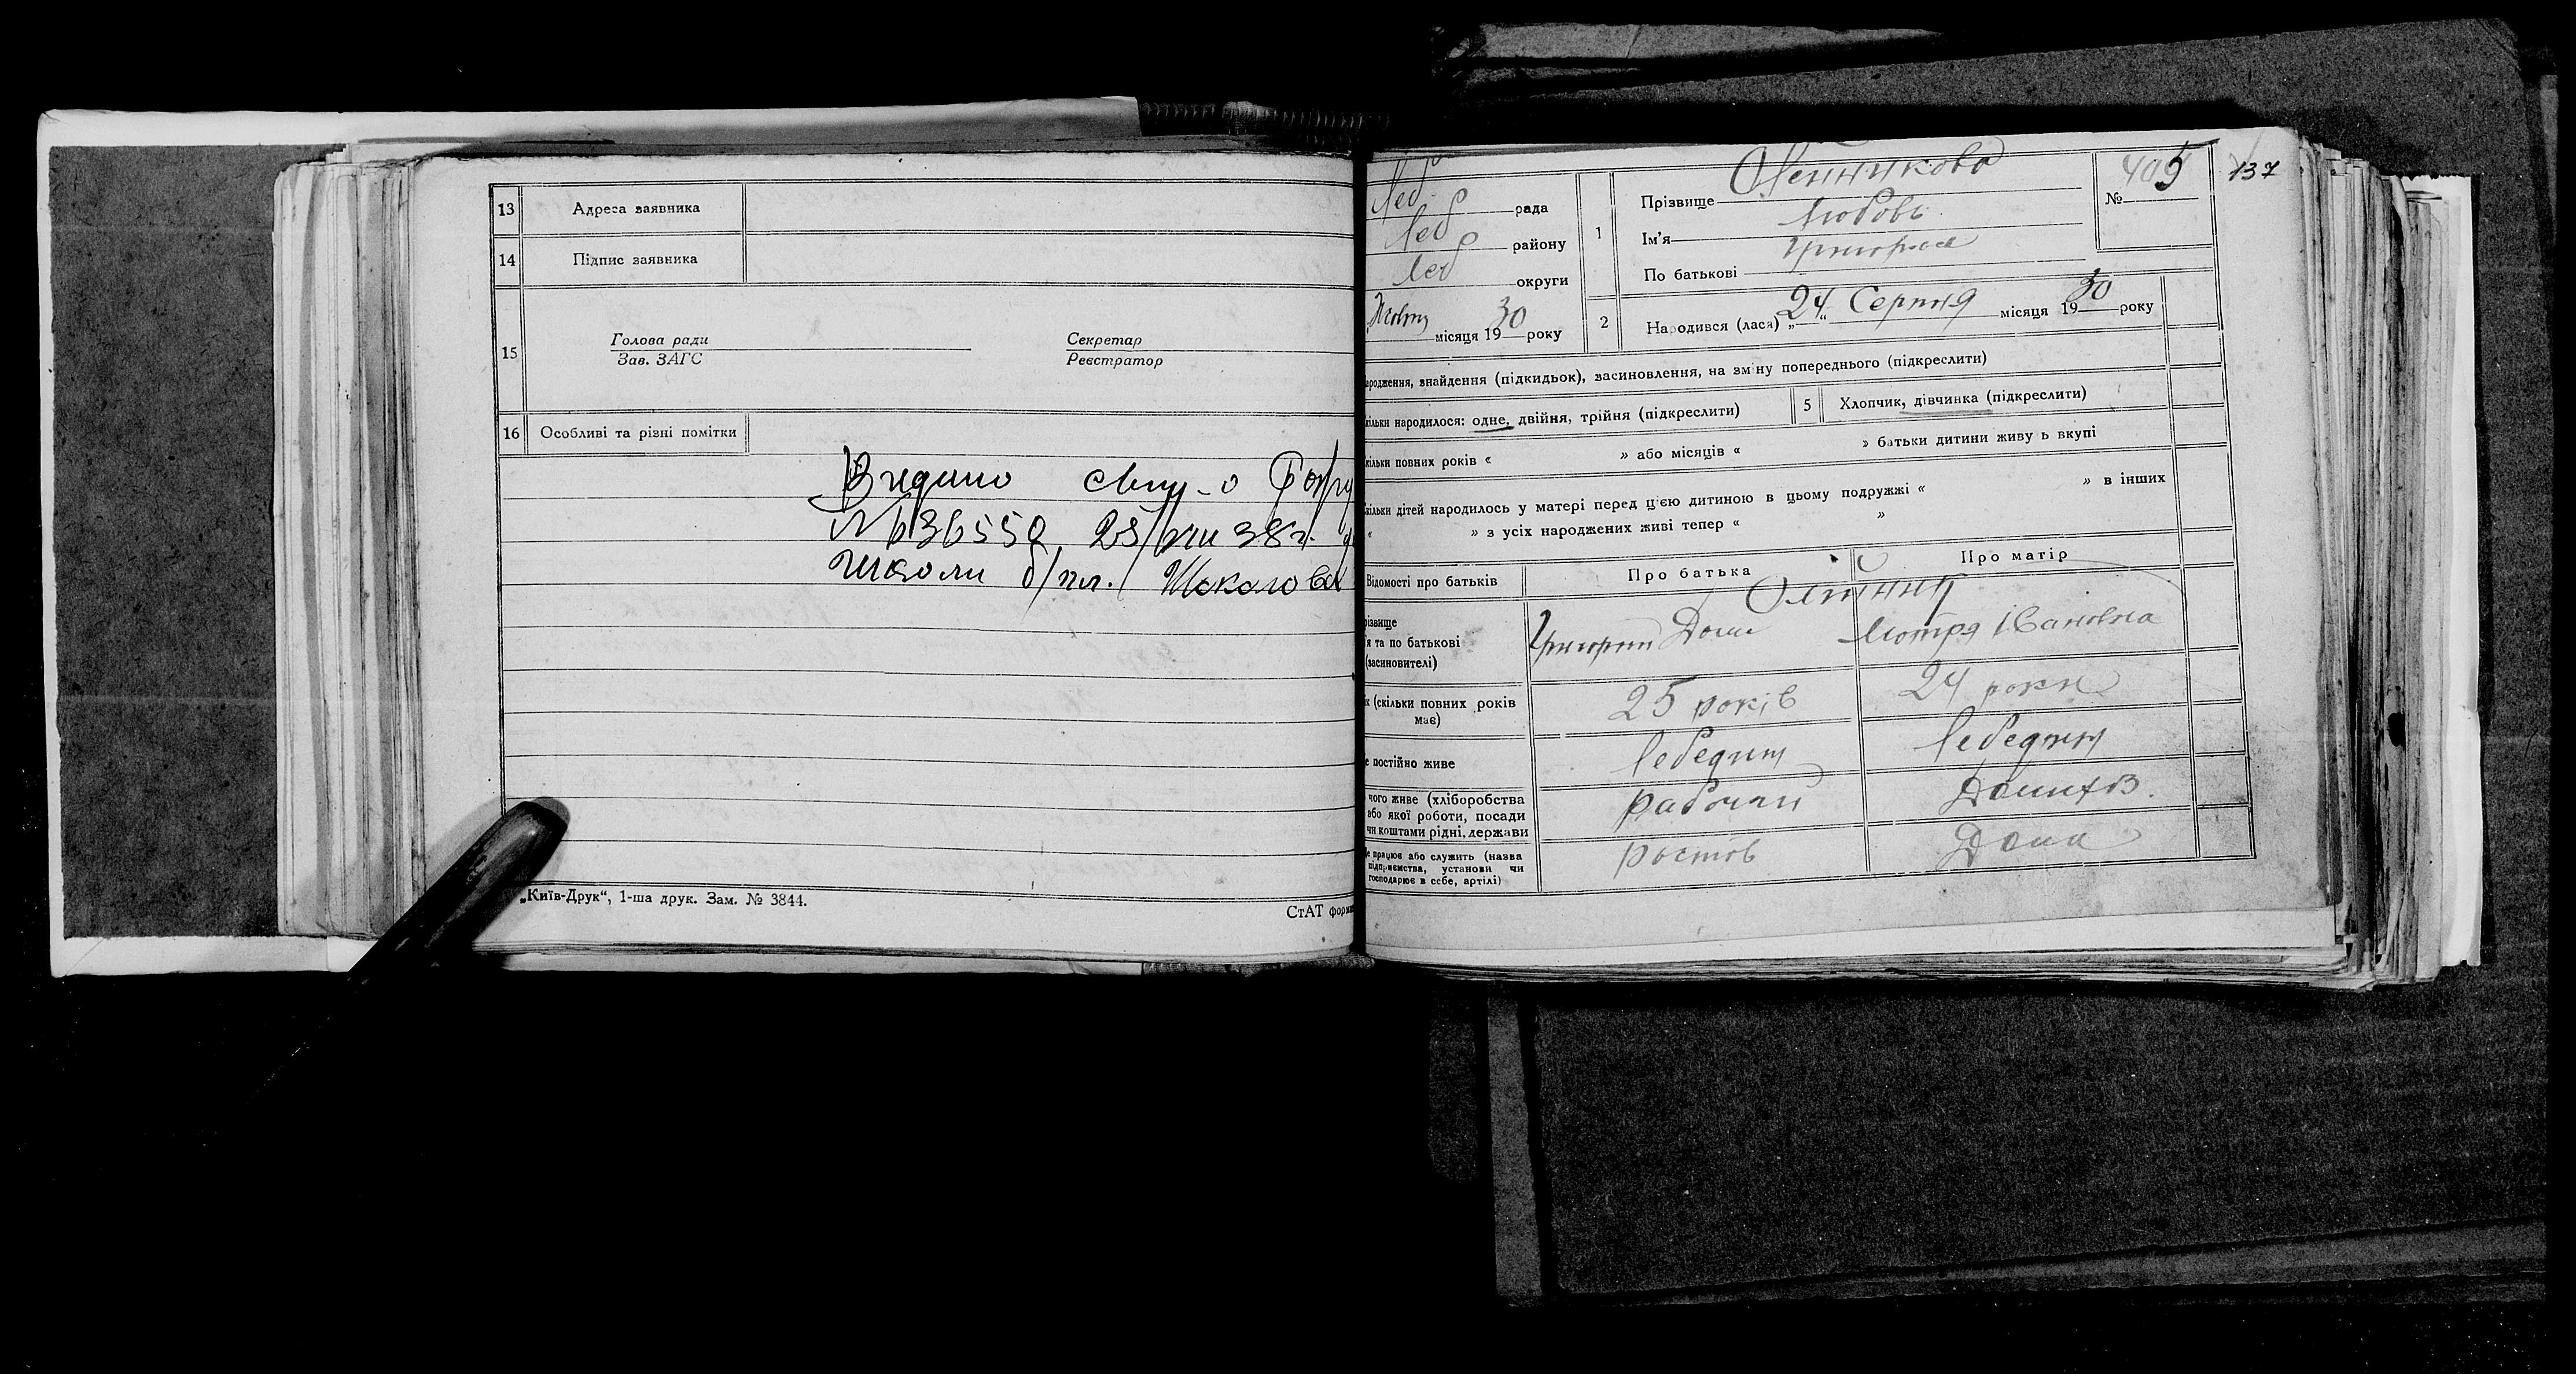 13 Адреса заявника
14 Підпис заявника
15 Голова ради Секретар
Зав. ЗАГС Реєстратор
16 Особливі та різні помітки
Видано
28/VIII 38 г.
школи
„Київ-Друк“, 1-ша друк. Зам. № 3844.
СтАТ форма
137
Леб рада
Леб району
Леб округи
місяця 1930 року
1 Прізвище
Ім'я Любовь
По батькові
№ 405
2 Народився (лася) „24“ Серпня місяця 1930 року
народження, знайдення (підкидьок), засиновлення, на зміну попереднього (підкреслити)
скільки народилося: одне, двійня, трійня (підкреслити) 5 Хлопчик, дівчинка (підкреслити)
скільки повних років « » або місяців « » батьки дитини живуть вкупі
скільки дітей народилось у матері перед цією дитиною в цьому подружжі « » в інших
« » з усіх народжених живі тепер « »
Відомості про батьків Про батька Про матір
Олійник
різвище
я та по батькові
(засиновителі)
Григорий Мотря Івановна
к (скільки повних років має) 25 років 24 роки
е постійно живе Лебедин Лебедин
чого живе (хліборобства або якої роботи, посади чи коштами рідні, держави рабочий
е працює або служить (назва підприємства, установи чи господарює в себе, артілі) Ростов Дома